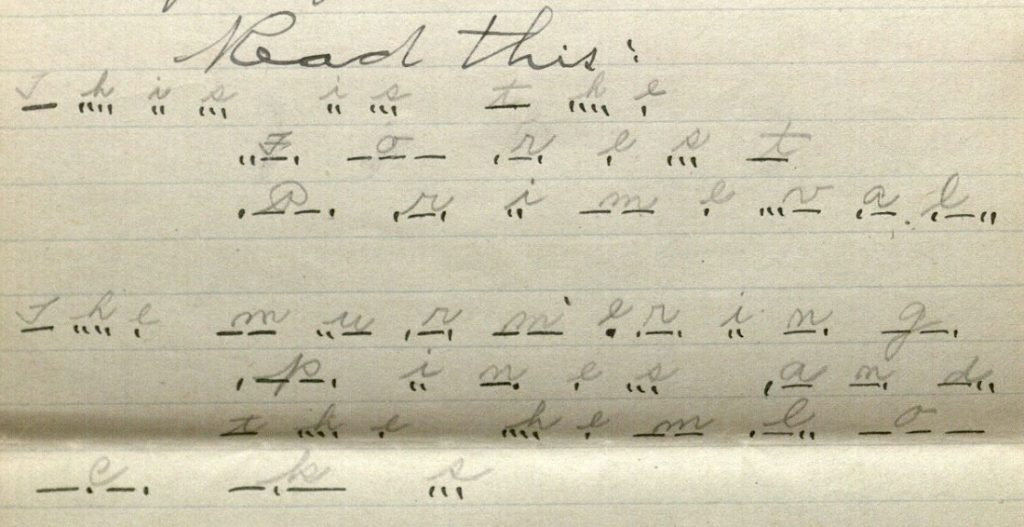 Read this:
This is the
Forest
Primeval.
The murmering
pines and
the hemlo
cks